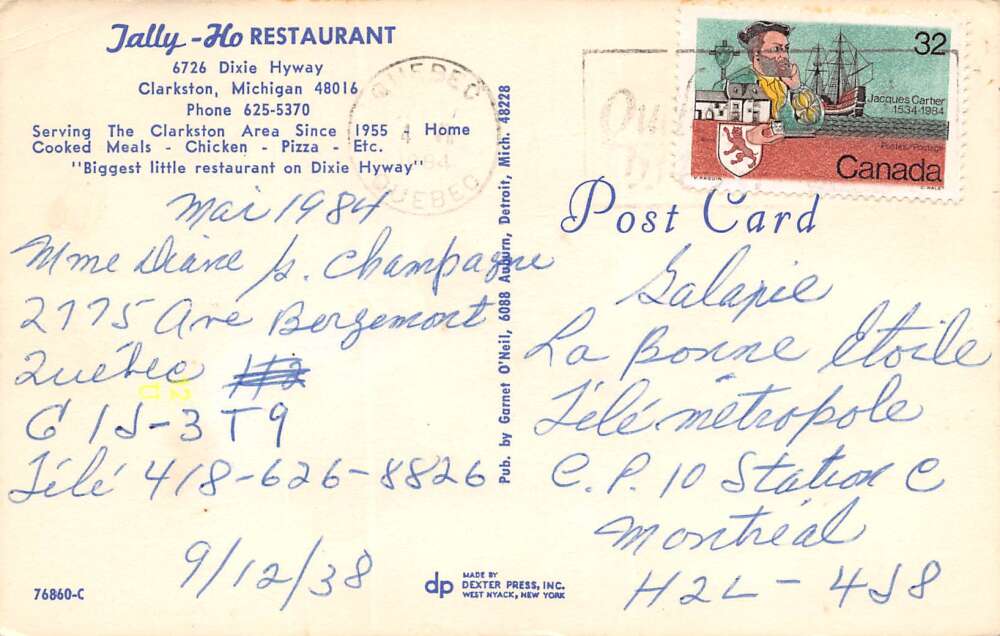 Tally-Ho RESTAURANT
6726 Dixie Hyway
Clarkston, Michigan 48016
Phone 625-5370
Serving The Clarkston Area Since 1955 - Home
Cooked Meals - Chicken - Pizza - Etc.
"Biggest little restaurant on Dixie Hyway"
Mai 1984
Mme Diane G. Champagne
2775 Ave Bergemont
Québec
G1J-3T9
Télé 418-626-8826
9/12/38
76860-C
Pub. by Garnet O'Neil, 6088 Auburn, Detroit, Mich. 48228
dp MADE BY
DEXTER PRESS, INC.
WEST NYACK, NEW YORK
QUEBEC
84
QUEBEC
32
Jacques Cartier
1534-1984
Postes/Postage
Canada
Post Card
Galaxie
La Bonne Etoile
Télé métropole
C.P. 10 Station C
Montréal
H2L-4J8